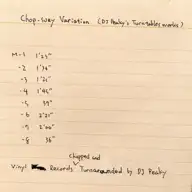 Chop-way Variation (DJ Peaky's Turntables works)
M-1 1'23"
-2 1'34"
-3 1'21"
-4 1'45"
-5 39"
-6 2'21"
-7 2'00"
-8 36"
chopped and
Vinyl Records Turnarounded by DJ Peaky